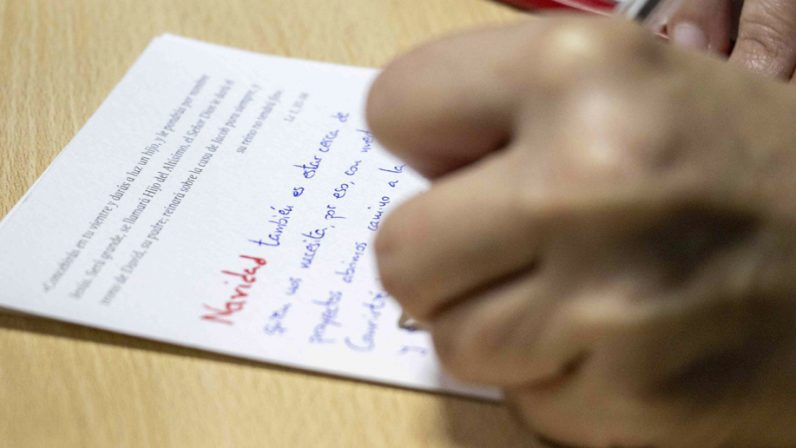 «Concebirás en tu vientre y darás a luz un hijo, y le pondrás por nombre
Jesús. Será grande, se llamará Hijo del Altísimo, el Señor Dios le dará el
trono de David, su padre; reinará sobre la casa de Jacob para siempre, y
su reino no tendrá fin»
Lc 1, 31-
Navidad también es estar cerca de
nos necesita, por eso, con
proyectos abrimos camino a la
y